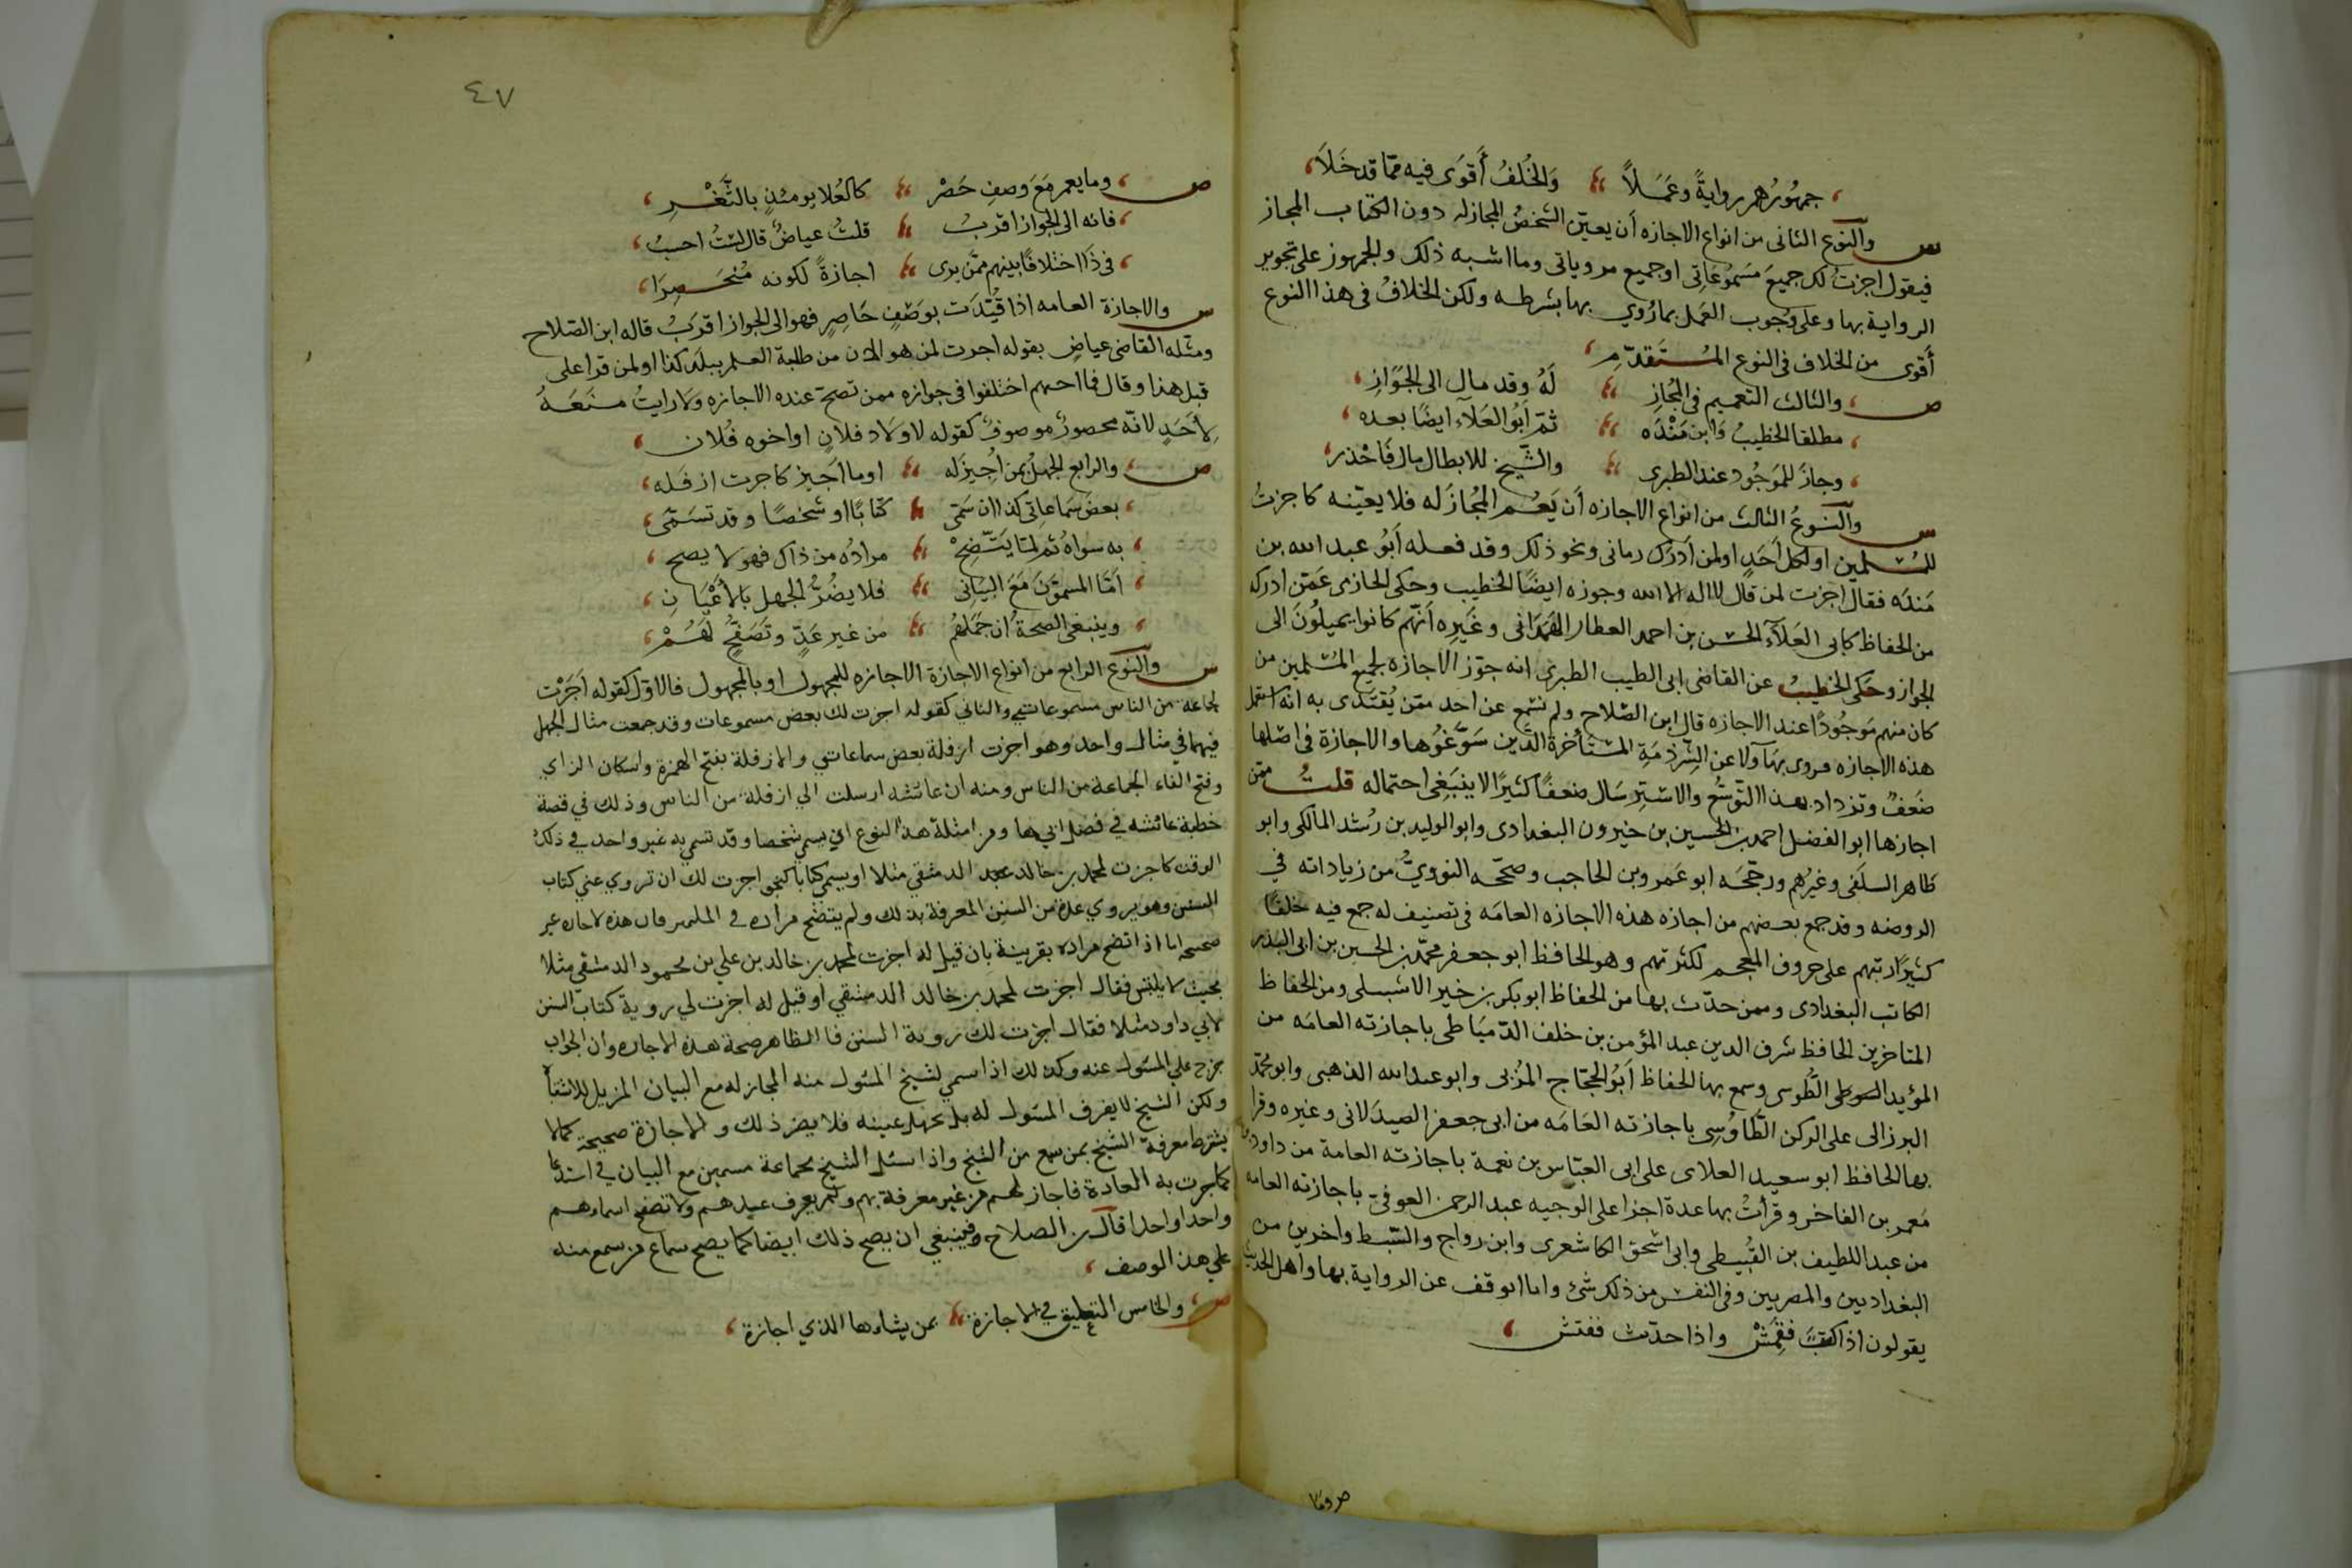 جمهورهم رواية وعملاً والخلف أقوى فيه مما قد خلا
س والنوع الثانى من انواع الاجازه أن يعيّن الشخص المجاز له دون الكتاب المجاز
فيقول اجزت لك جميع مسموعاتى او جميع مروياتى وما اشبه ذلك والجمهور على تجويز
الرواية بها وعلى وجوب العمل بما رُوي بها بشرطه ولكن الخلاف فى هذا النوع
أقوى من الخلاف فى النوع المُستقدّم
ص والثالث التعميم فى المُجاز لهُ وقد مال الى الجواز
مطلقا الخطيبُ وابن مَنْدَه ثمّ ابو العلآء ايضًا بعده
وجاز للموجود عند الطبرى والشيخ للابطال مال فاحذر
س والنوعُ الثالث من انواع الاجازه أن يَعُم المُجاز له فلا يعيّنه كاجزتُ
للمسلمين او لكل أحدٍ او لمن أدرك زمانى ونحو ذلك وقد فعله أبو عبد الله بن
مَندَه فقال اجزت لمن قال لا اله الا الله وجوزه ايضًا الخطيب وحكى الحازمى عَمّن ادركه
من الحفاظ كابى العَلآء الحسن بن احمد العطار الهَمَدَانى وغيره أنهّم كانوا يميلُون الى
الجواز وحَكى الخطيبُ عن القاضى ابى الطيب الطبرى انه جوّز الاجازه لجميع المُسلمين من
كان منهم مَوجُودًا عند الاجازه قال ابن الصّلاح ولم نسمع عن احد ممّن يُقتدى به انه استعمل
هذه الاجازه فروى بها ولا عن الشِّرذمَةِ المستأخرة الذين سَوّغُوها والاجازة فى اصلها
ضَعفٌ وتزداد بهذا التّوسُّع والاسترسَال ضعفًا كثيرًا لا ينبَغِى احتماله قلتُ ممّن
اجازها ابو الفضل احمد بن الحسين بن خيرون البغدادى وابو الوليد بن رُشد المالكى وابو
طاهر السلَفى وغيرُهم ورجّحَه ابو عَمرو بن الحاجب وصحّحه النوويُّ من زياداته في
الروضه وقد جمع بعضهم من اجازه هذه الاجازه العامَه فى تصنيف له جمع فيه خلقًا
كثيرًا رتبهم على حروف المعجم لكثرتهم وهو الحافظ ابو جعفر محمّد بن الحسين بن ابى البدر
الكاتب البغدادى وممن حدّث بها من الحفاظ ابو بكر بن خير الاشبيلى ومن الحفاظ
المتاخرين الحافظ شرف الدين عبد المؤمن بن خلف الدّميَاطى باجازته العامَه من
المؤيد الطُّوسى وسمع بها الحفاظ أبو الحجّاج المزّى وابو عبد الله الذهبى وابو محمّد
البرزالى على الركن الطّاوُسِى باجازته العَامَه من ابى جعفر الصيدَلانى وغيره وقرا
بها الحافظ ابو سعيد العلاى على ابى العبّاس بن نعمة باجازته العامة من داود بن
مَعمر بن الفاخر وقرأتُ بها عدة اجزا على الوجيه عبد الرحمن العوفى باجازته العامه
من عبد اللطيف بن القُبيطى وابى اسحق الكاشغرى وابن رواج والسّبط واخرين من
البغداديين والمصريين وفى النفس من ذلك شئ وانا اتوقف عن الرواية بها واهل الحديث
يقولون اذا كتبَت فقمّشْ واذا حدّث ففتش
ص وما
٤٧
ص وما يعم مَعَ وصفِ حَصْر كالعُلما يومئذٍ بالثَّغْرِ
فانه الى الجواز اقربُ قلتُ عياضٌ قال لستُ احسبُ
فى ذَا اختلافًا بينهم ممّن يرى اجازةً لكونه مُنحَصِرَا
س والاجازة العامه اذا قُيّدَت بوَصْفٍ حَاصِرٍ فهو الى الجواز اقرَبُ قاله ابن الصّلاح
ومثّله القاضى عياضٍ بقوله اجزت لمن هو الان من طلبة العلم ببلد كذا او لمن قرا على
قبل هذا وقال فما احسبهم اختلفوا فى جوازه ممن تصحّ عنده الاجازه ولا رايتُ منعَهُ
لأحَدٍ لانّه محصورٌ موصوفٌ كقوله لاولاد فلان او اخوه فُلان
ص والرابع الجهلُ بمن أُجيز له او ما اجَيز كاجزت ازفَله
بعضَ سَماعاتى كذا ان سَمّى كتابًا او شخصًا وقد تسَمّى
به سواهُ ثم لمّا يَتَّضِحْ مرادُه من ذاك فهو لا يصح
أمّا المسمّوَن مَعَ البيَانِ فلا يضُرُّ الجهل بالأعيَانِ
وينبغى الصحةُ أن جَمَلهُم من غير عَدّ وتَصَفُّحٍ لَهُمْ
س والنوع الرابع من انواع الاجازة الاجازه للمجهول او بالمجهول فالاوّل كقوله أجَزت
لجماعه من الناس مسموعاتي والثاني كقوله اجزت لك بعض مسموعات وقد جمعت مثال الجهل
فيهما في مثال واحد وهو اجزت ازفلة بعض سماعاتي والازفلة بفتح الهمزة واسكان الزاي
وفتح الفاء الجماعة من الناس ومنه ان عائشه ارسلت الي ازفلة من الناس وذلك في قصة
خطبة عائشه في فضل ابيها ومن امثلة هذا النوع ان يسمي شخصا وقد تسمي به غير واحد في ذلك
الوقت كاجزت لمحمد بن خالد الدمشقي مثلا او يسمي كتابا كنحو اجزت لك ان تروي عني كتاب
السنن وهو يروي عدة من السنن المعرفة بذلك ولم يتضح مراده في فان هذه الاجازه غير
صحيحه اما اذا اتضح مراده بقرينة بان قيل له اجزت لمحمد بن خالد بن علي بن محمود الدمشقي مثلا
بحيث لا يلتبس فقال اجزت لمحمد بن خالد الدمشقي او قيل له اجزت لي روية كتاب السنن
لابي داود مثلا فقال اجزت لك روية السنن فالظاهر صحة هذه الاجازه وان الجواب
خرج علي المسئول عنه وكذلك اذا سمي لشيخ المسئول منه المجاز له مع البيان المزيل للاشتباه
ولكن الشيخ لا يعرف المسئول له بل يجهل عينه فلا يضر ذلك والاجازة صحيحة كما لا
يشترط معرفة الشيخ بمن سمع من الشيخ واذا سئل الشيخ بجماعة مسمين مع البيان في استدعا
كما جرت به العادة فاجاز لهم من غير معرفة بهم ولم يعرف عينهم ولا تصفح اسماءهم
واحدا واحدا قال بن الصلاح فينبغي ان يصح ذلك ايضا كما يصح سماع من سمع منه
علي هذا الوصف
ص والخامس التعليق في الاجازة بمن يشاءها الذي اجازة